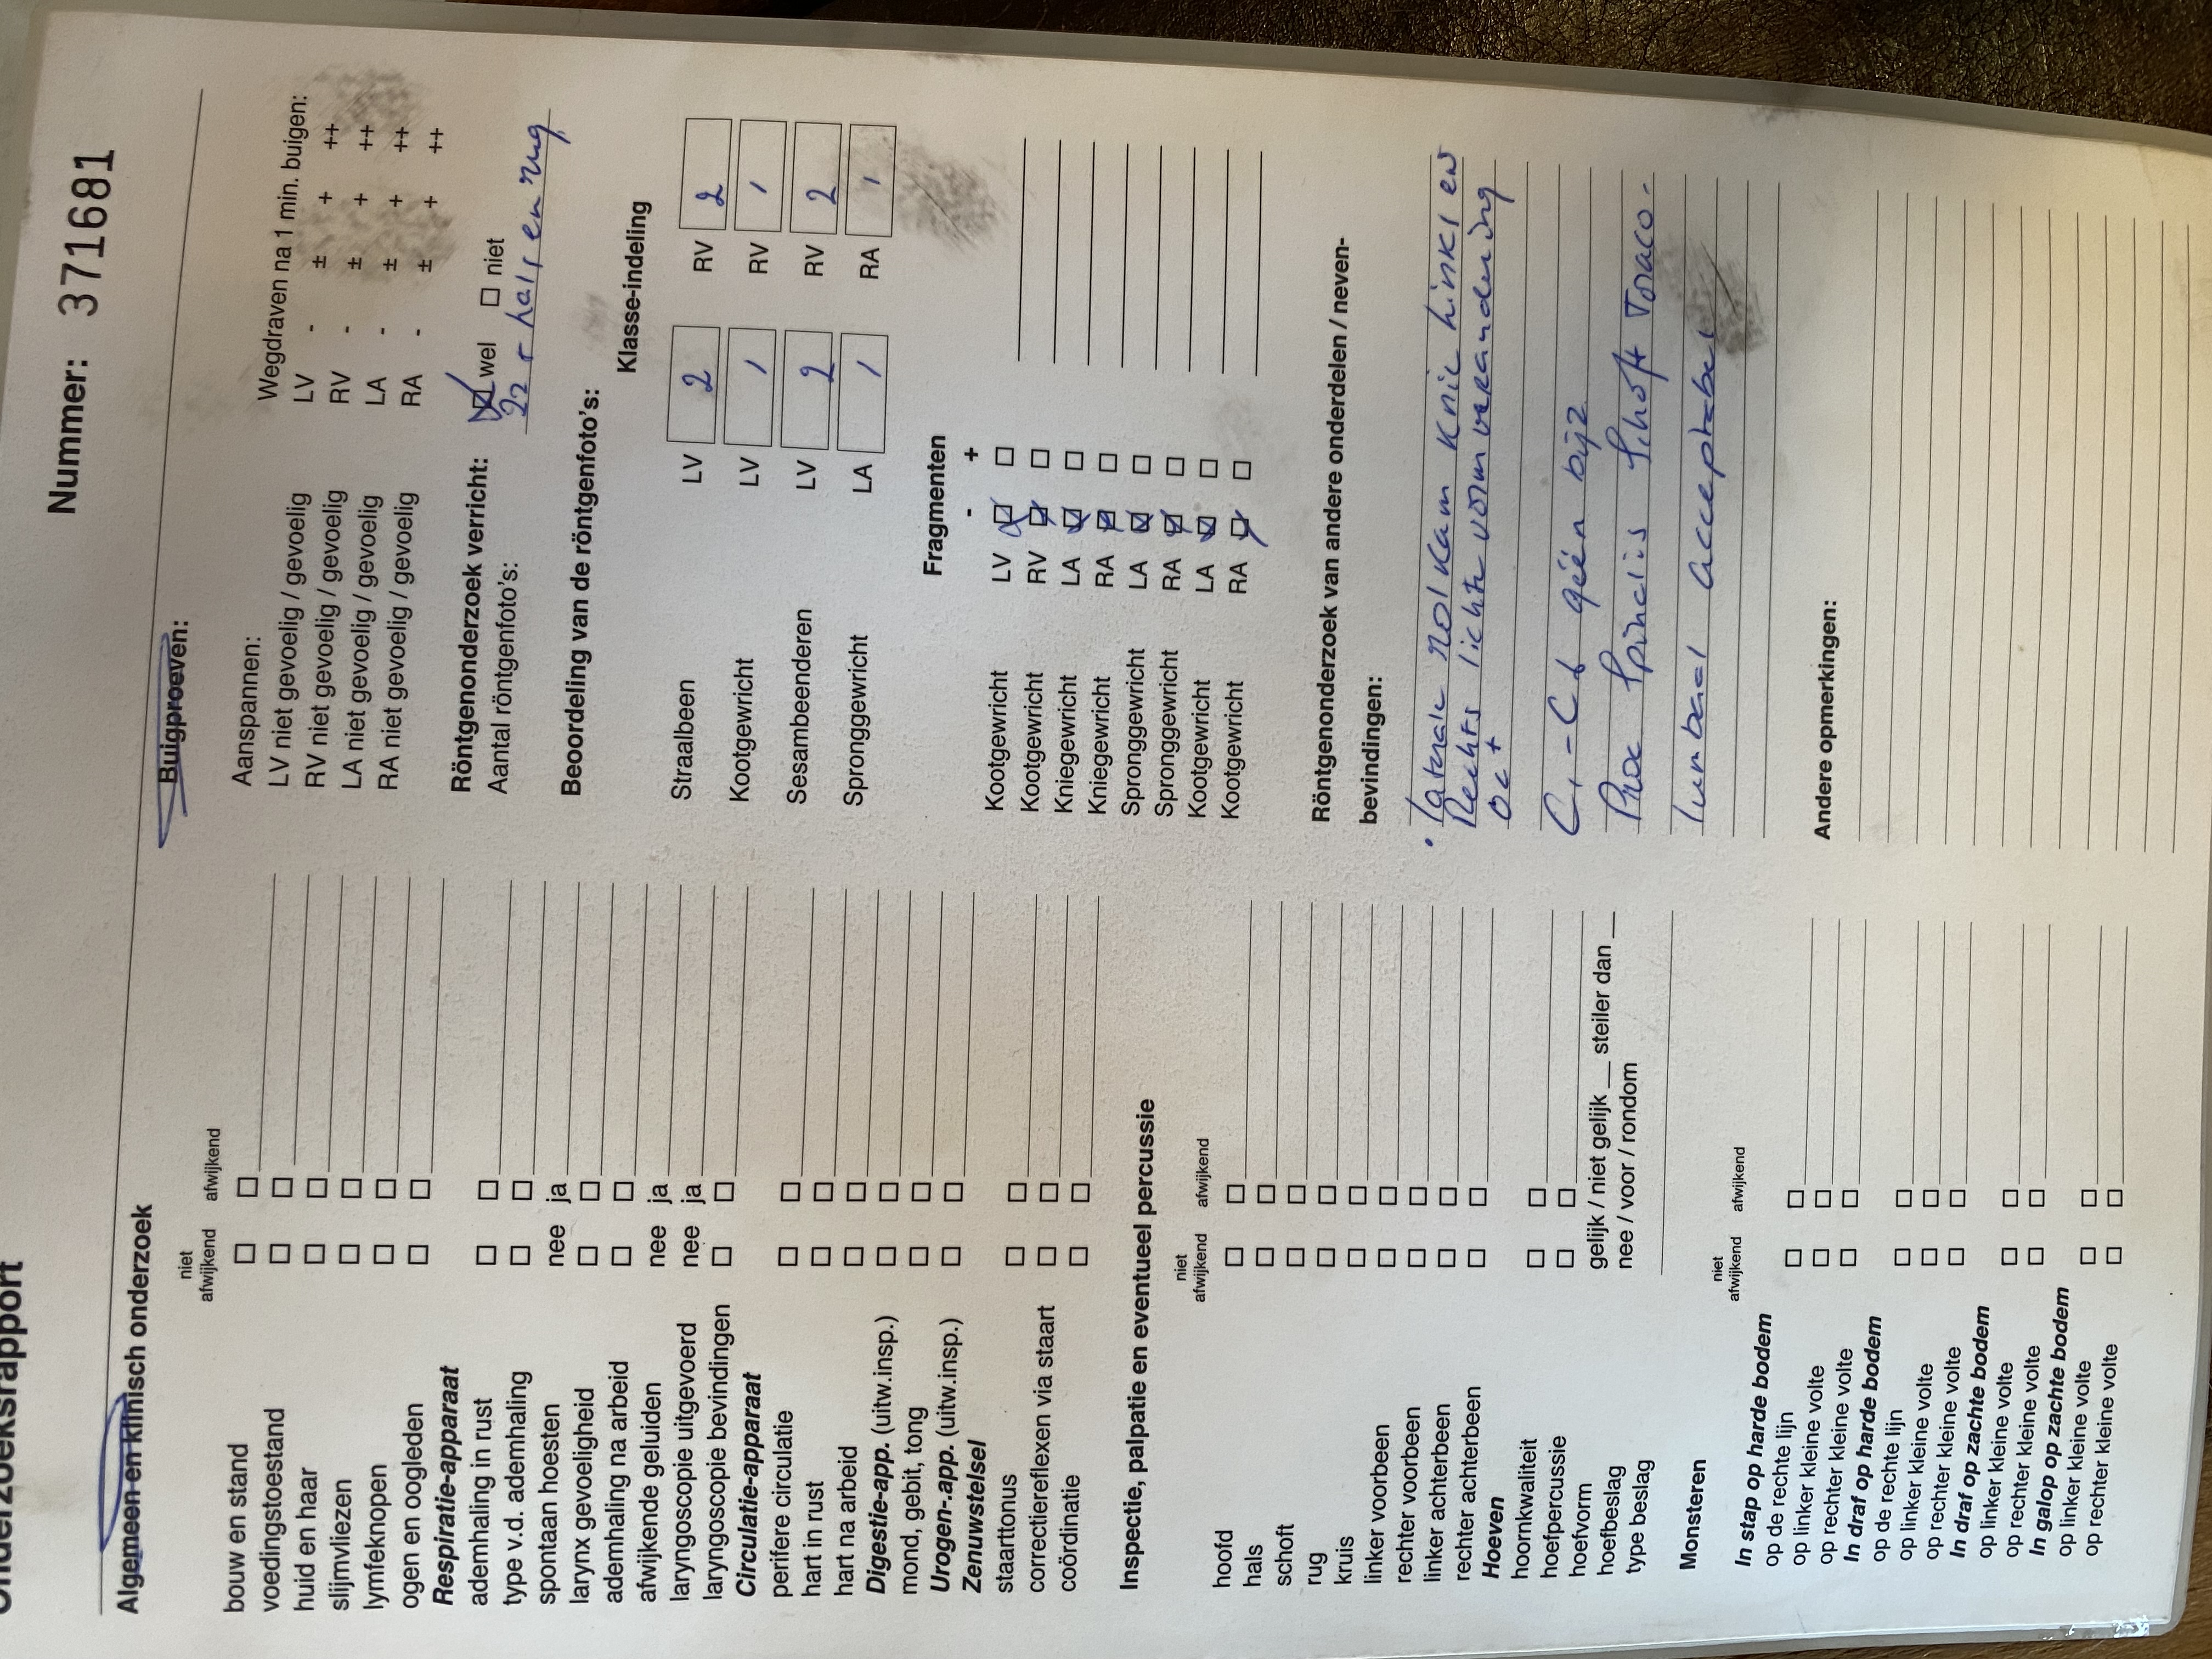 Onderzoeksrapport
Nummer: 371681
Algemeen en klinisch onderzoek
niet afwijkend
afwijkend
bouw en stand ☐ ☐
voedingstoestand ☐ ☐
huid en haar ☐ ☐
slijmvliezen ☐ ☐
lymfeknopen ☐ ☐
ogen en oogleden ☐ ☐
Respiratie-apparaat
ademhaling in rust ☐ ☐
type v.d. ademhaling ☐ ☐
spontaan hoesten nee ja
larynx gevoeligheid ☐ ☐
ademhaling na arbeid ☐ ☐
afwijkende geluiden nee ja
laryngoscopie uitgevoerd nee ja
laryngoscopie bevindingen ☐ ☐
Circulatie-apparaat
perifere circulatie ☐ ☐
hart in rust ☐ ☐
hart na arbeid ☐ ☐
Digestie-app. (uitw.insp.) ☐ ☐
mond, gebit, tong ☐ ☐
Urogen-.app. (uitw.insp.) ☐ ☐
Zenuwstelsel
staarttonus ☐ ☐
correctiereflexen via staart ☐ ☐
coördinatie ☐ ☐
Inspectie, palpatie en eventueel percussie
niet afwijkend
afwijkend
hoofd ☐ ☐
hals ☐ ☐
schoft ☐ ☐
rug ☐ ☐
kruis ☐ ☐
linker voorbeen ☐ ☐
rechter voorbeen ☐ ☐
linker achterbeen ☐ ☐
rechter achterbeen ☐ ☐
Hoeven
hoornkwaliteit ☐ ☐
hoefpercussie ☐ ☐
hoefvorm gelijk / niet gelijk __ steiler dan __
hoefbeslag nee / voor / rondom
type beslag
Monsteren
niet afwijkend
afwijkend
In stap op harde bodem
op de rechte lijn ☐ ☐
op linker kleine volte ☐ ☐
op rechter kleine volte ☐ ☐
In draf op harde bodem
op de rechte lijn ☐ ☐
op linker kleine volte ☐ ☐
op rechter kleine volte ☐ ☐
In draf op zachte bodem
op linker kleine volte ☐ ☐
op rechter kleine volte ☐ ☐
In galop op zachte bodem
op linker kleine volte ☐ ☐
op rechter kleine volte ☐ ☐
Buigproeven:
Aanspannen: Wegdraven na 1 min. buigen:
LV niet gevoelig / gevoelig LV - ± + ++
RV niet gevoelig / gevoelig RV - ± + ++
LA niet gevoelig / gevoelig LA - ± + ++
RA niet gevoelig / gevoelig RA - ± + ++
Röntgenonderzoek verricht: ☑ wel ☐ niet
Aantal röntgenfoto's: 22 + hals en rug
Beoordeling van de röntgenfoto's:
Klasse-indeling
Straalbeen LV 2 RV 2
Kootgewricht LV 1 RV 1
Sesambeenderen LV 2 RV 2
Spronggewricht LA 1 RA 1
Fragmenten
- +
Kootgewricht LV ☑ ☐
Kootgewricht RV ☑ ☐
Kniegewricht LA ☑ ☐
Kniegewricht RA ☑ ☐
Spronggewricht LA ☑ ☐
Spronggewricht RA ☑ ☐
Kootgewricht LA ☑ ☐
Kootgewricht RA ☑ ☐
Röntgenonderzoek van andere onderdelen / neven-
bevindingen:
· laterale rolkam Knie links en
Rechts lichte vormverandering
C1 - C6 géén bijz
Proc Spinalis Schoft Toraco-
lumbaal acceptabel
Andere opmerkingen: